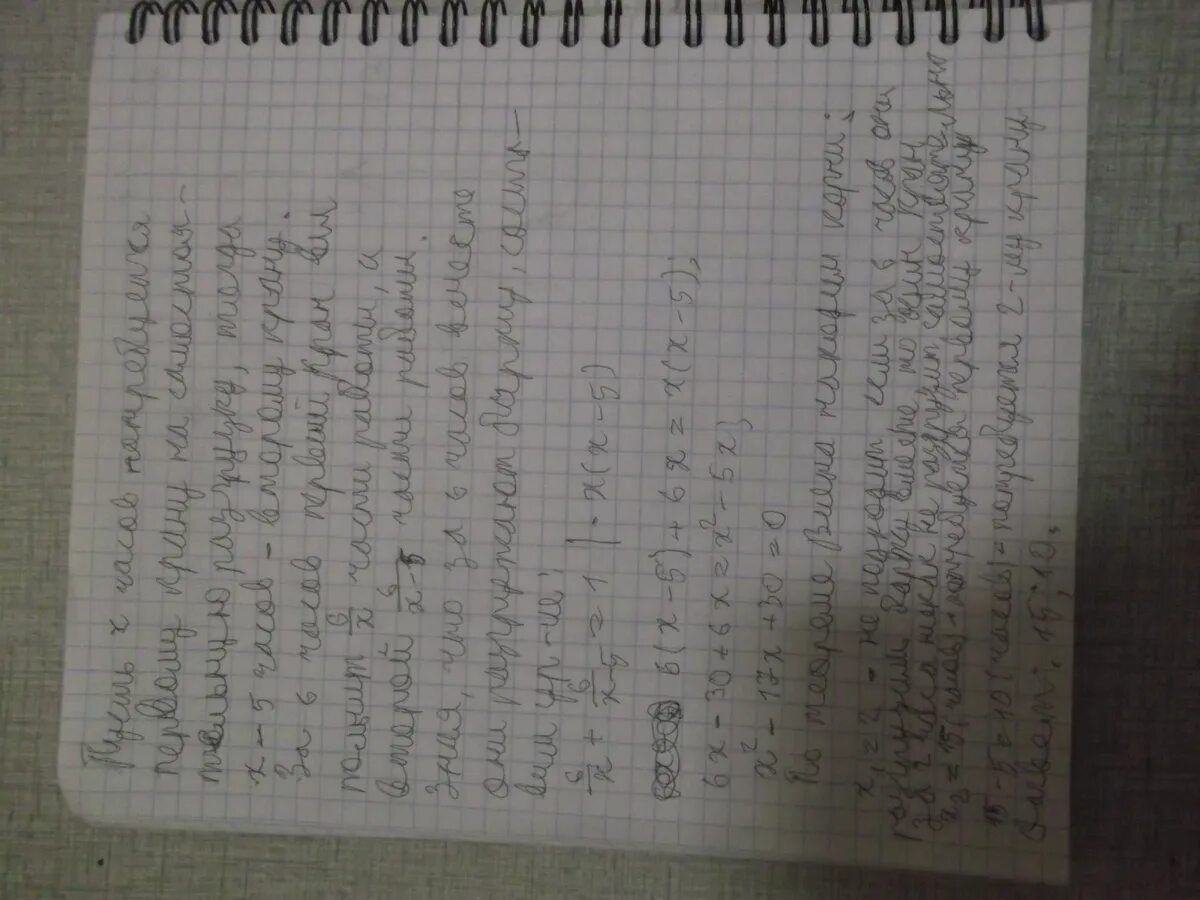 Пусть x часов потребуется
первому крану на самостоя-
тельную разгрузку, тогда
x - 5 часов - второму крану.
За 6 часов первый кран вы
полнит 6/x части работы, а
второй 6/x-5 части работы.
Зная, что за 6 часов вместе
они разгружают баржу, соста-
вим ур-ие:
6/x + 6/x-5 = 1 | · x(x-5)
6(x-5) + 6x = x(x-5);
6x - 30 + 6x = x² - 5x;
x² - 17x + 30 = 0
По теореме Виета находим корни:
x₁ = 2 - не подходит если за 6 часов они
разгрузили баржу вместе, то один кран
за 2 часа никак не разгрузит самостоятельно
x₂ = 15 (часов) - потребуется первому крану
15 - 5 = 10 (часов) - потребуется 2-му крану
Ответ: 15; 10.